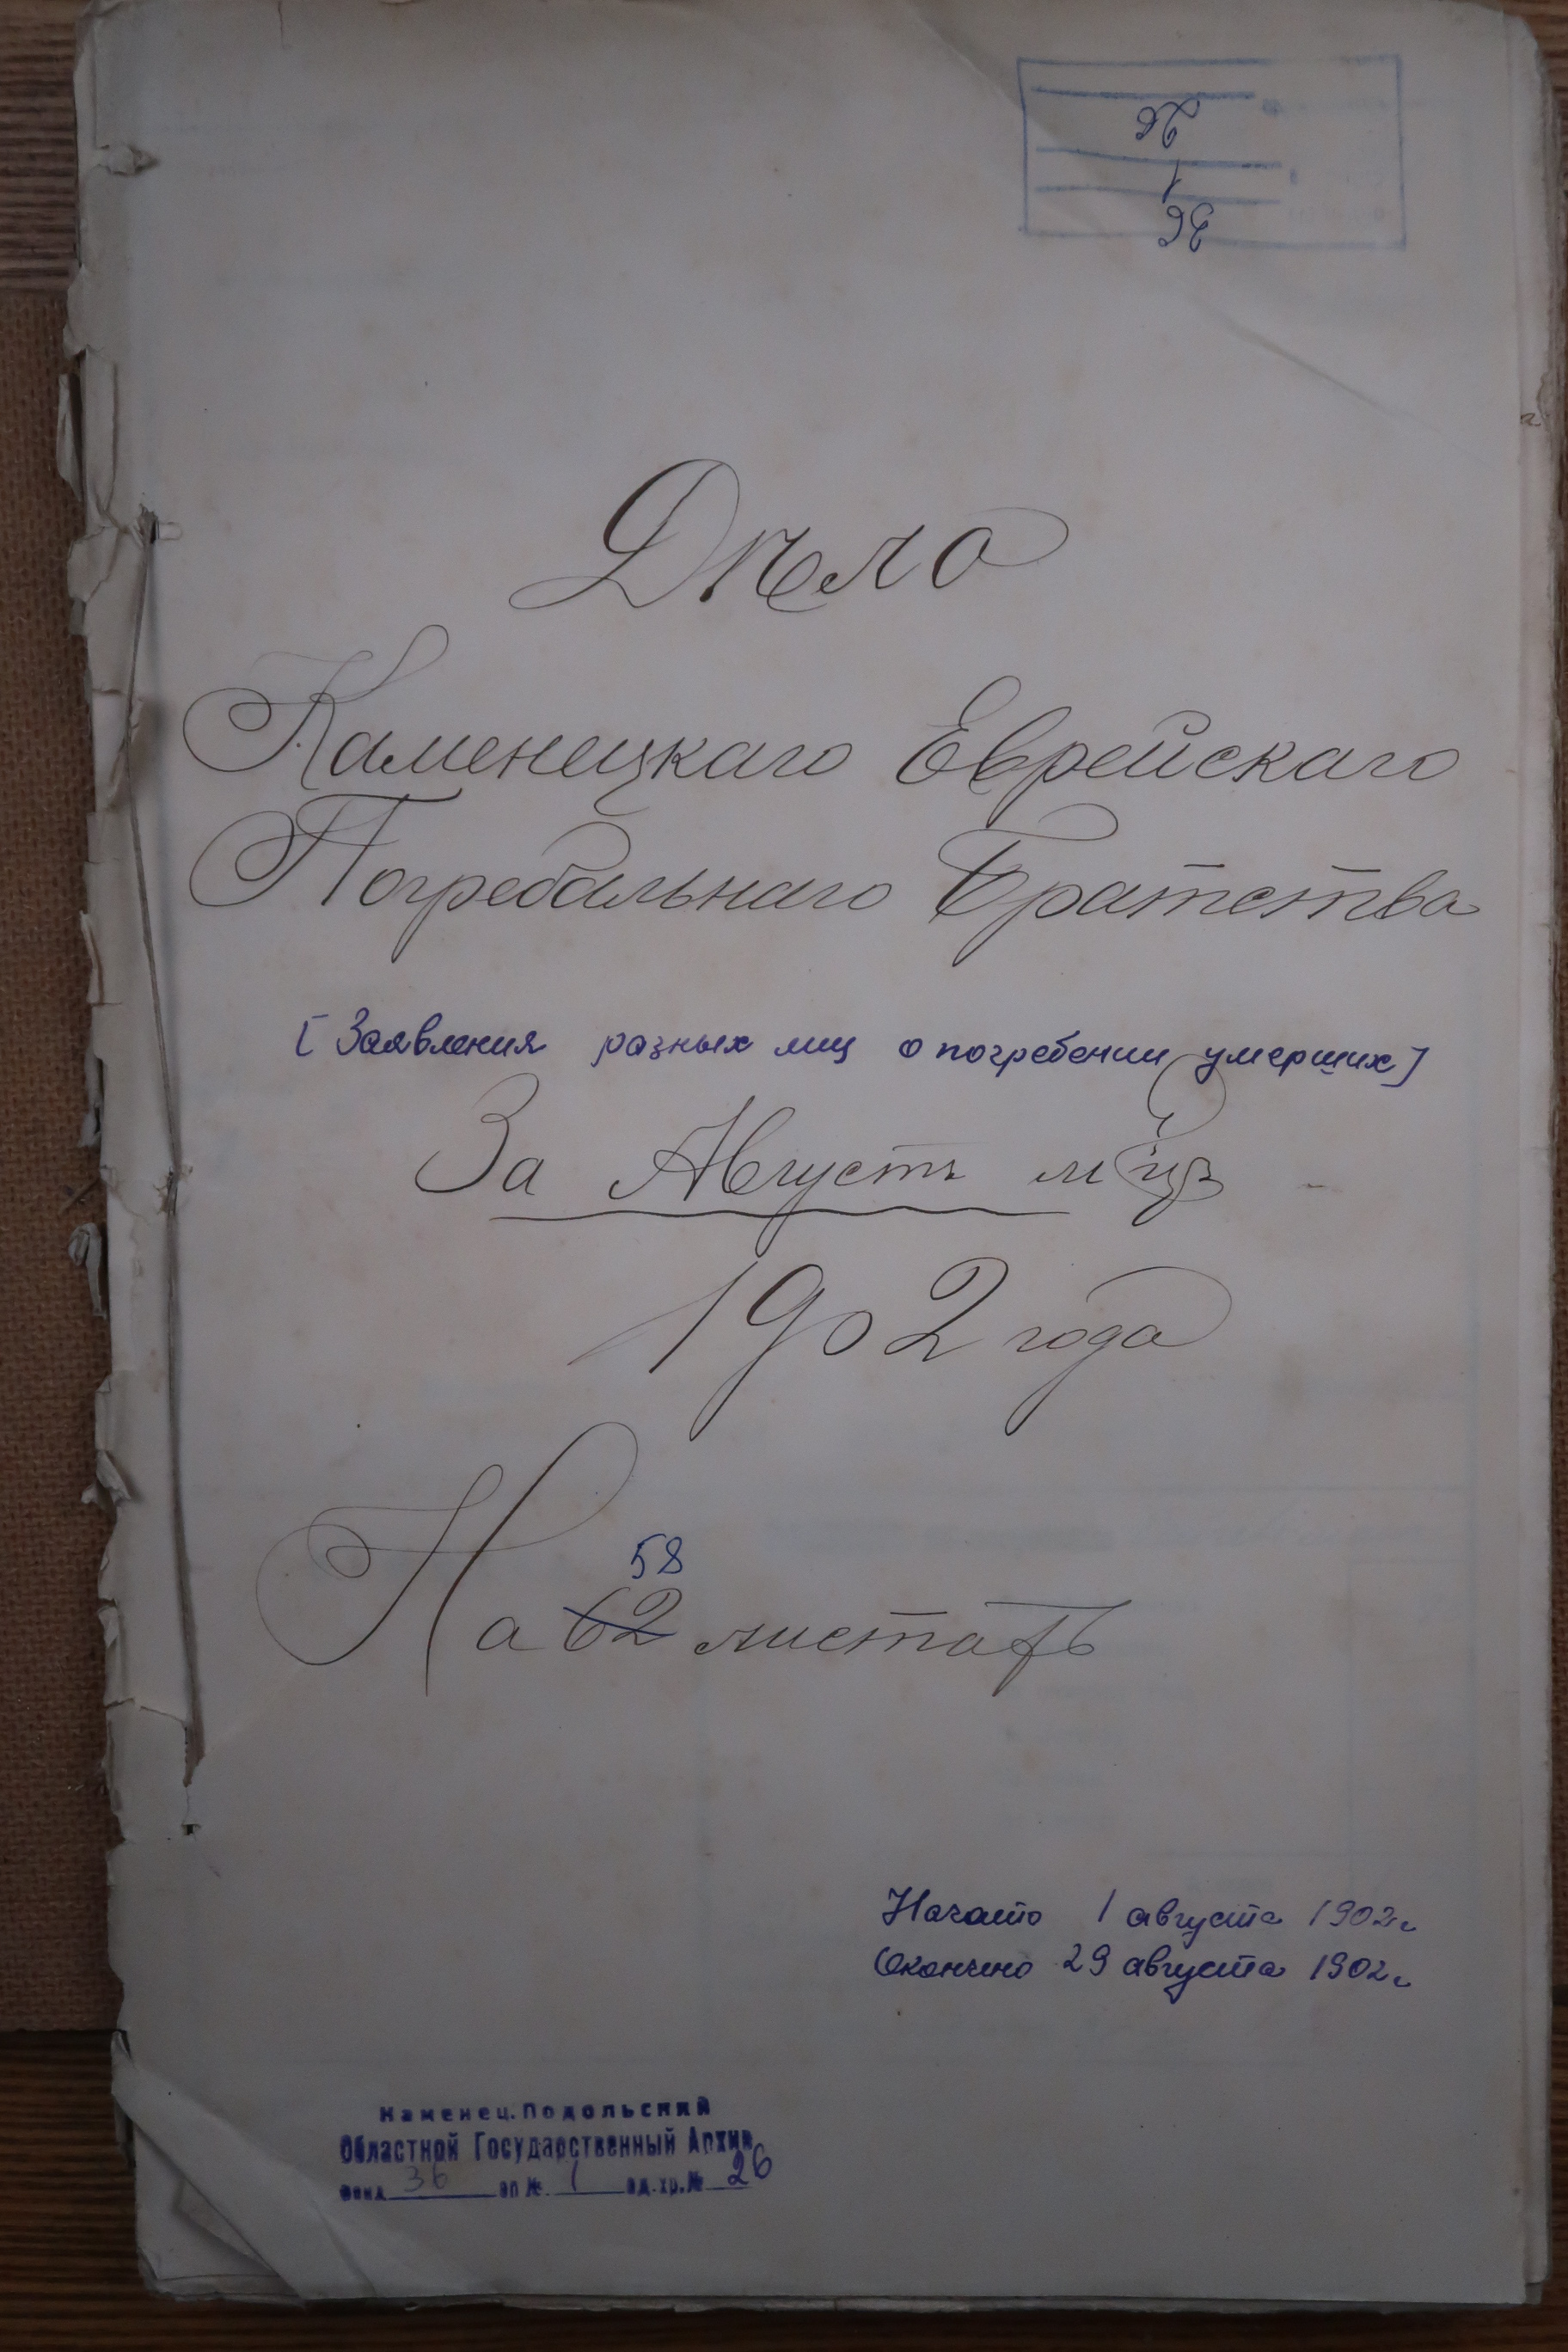 26
1
36
Дѣло
Каменецкаго Еврейскаго
Погребальнаго Братства
[Заявления разных лиц о погребении умерших]
За Августъ м-цъ
1902 года
58
На 62 листахъ
Начато 1 августа 1902 г.
Окончено 29 августа 1902 г.
Каменец.Подольский
Областной Государственный Архив
Фонд 36 оп № 1 ед.хр.№ 26